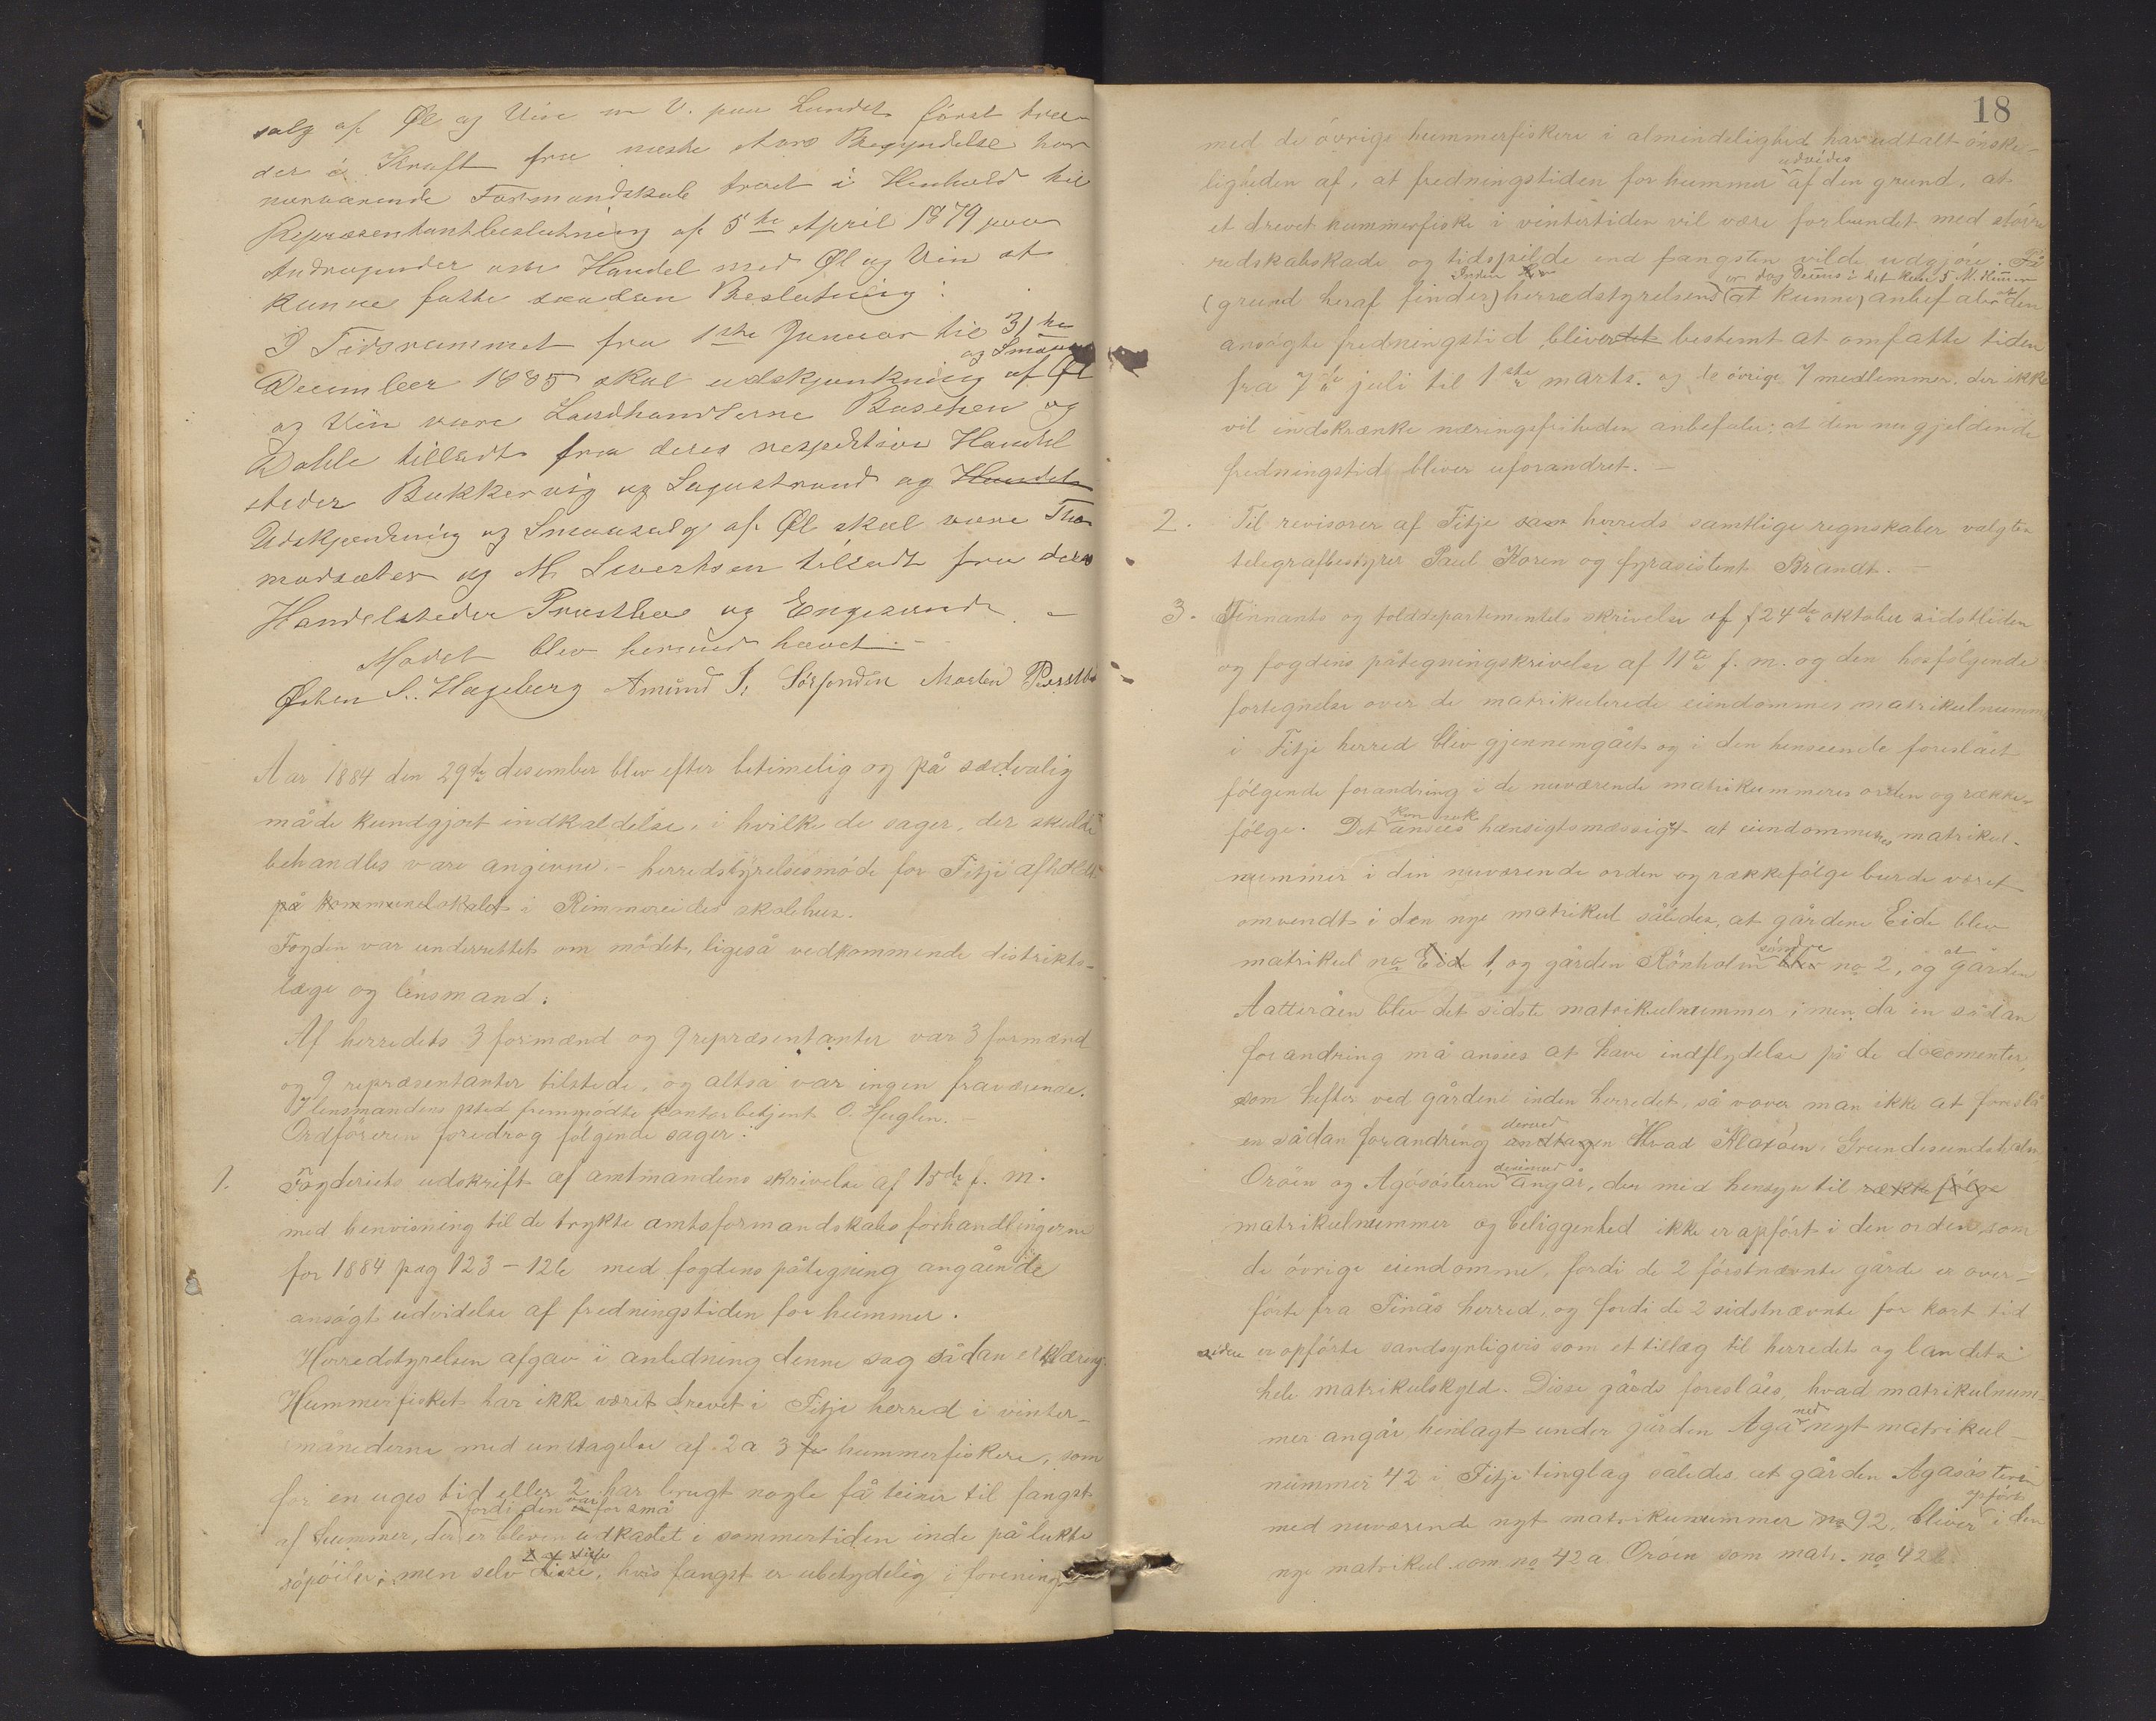 salg af Øl og Viin m V. paa Landet først træ-
der i Kraft fra næste Aars Begyndelse har
nærværende Formandskab troet i Henhold til
Repræsentantbeslutning af 5te April 1879 paa
Andragender om Handel med Øl og Viin at
kunne fatte saadan Beslutning:
I Tidsrummet fra 1ste Januar til 31te
December 1885 skal udskjænkning og Smaasalg af Øl
og Viin være Landhandlerne Buschen og
Dahle tilladt fra deres respektive Handel
steder Bukkervig og Sagvstrand og Handels
Udskjænkning og Smaasalg af Øl skal være Tho-
madsæter og M. Sivertsen tilladt fra deres
Handelsteder Præsthol og Engesund. -
Mødet blev herved hævet. -
Østen S. Hageberg Amund J. Sørfonden Morten
Aar 1884 den 29de desember blev efter betimelig og på sædvalig
måde kundgjort indkaldelse, i hvilke de sager, der skulde
behandles vare angivne. - herredstyrelsesmøde for Fitje afholdt
på kommunelokalet i Rimmereides skolehus.
Fogden var underrettet om mødet, ligeså vedkommende distrikts-
læge og lensmand.
Af herredets 3 formænd og 9 repræsentanter var 3 formænd
og 9 repræsentanter tilstede, og altså var ingen fraværende.
I lensmandens sted fremmødte kontorbetjent O. Huglen. -
Ordføreren foredrog følgende sager:
1. Fogderiets udskrift af amtmandens skrivelse af 15de f. m.
med henvisning til de trykte amtsformandskabs forhandlingerne
for 1884 pag 123 - 126 med fogdens påtegning angående
ansøgt udvidelse af fredningstiden for hummer.
Herredstyrelsen afgav i anledning denne sag sådan erklæring:
Hummerfisket har ikke været drevet i Fitje herred i vinter-
månederne med undtagelse af 2 a 3 hummerfiskere, som
for en uges tid eller 2 har brugt nogle få teiner til fangst
af hummer, der fordi den var for små er bleven udkastet i sommertiden inde på lukte
søpøiler; men selv disse, hvis fangst er ubetydelig i forening
18
med de øvrige hummerfiskere i almindelighed har udtalt ønske-
ligheden af, at fredningstiden for hummer udvides af den grund, at
et drevet hummerfiske i vintertiden vil være forbundet med større
redskabskade og tidspilde end fangsten vilde udgjøre. På
(grund heraf finder) herredstyrelsens (at kunne) anbefaler den
ansøgte fredningstid bliver bestemt at omfatte tiden
fra 7de juli til 1ste marts. og de øvrige 7 medlemmer, der ikke
vil indskrænke næringsfriheden anbefaler: at den nu gjeldende
fredningstid bliver uforandret. -
2. Til revisorer af Fitje herreds samtlige regnskaber valgtes
telegrafbestyrer Paul Koren og fyrasistent Brandt. -
3. Finnants og tolddepartementets skrivelse af 24de oktober sidstleden
og fogdens påtegningskrivelse af 11te f. m. og den hosfølgende
fortegnelse over de matrikulerede eiendommes matrikulnummer
i Fitje herred blev gjennemgået og i den henseende foreslået
følgende forandring i de nuværende matrikummeres orden og række-
følge. Det kan nok ansees hænsigtsmæssigt at eiendommenes matrikul-
nummer i den nuværende orden og rækkefølge burde været
omvendt i den nye matrikul således, at gårdene Eide blev
matrikul no Eide 1, og gården Rönholm søndre blev no 2, og at gården
Aatteråen blev det sidste matrikulnummer; men da en sådan
forandring må ansees at have indflydelse på de documenter,
som hefter ved gårdene inden herredet, så vover man ikke at foreslå
en sådan forandring derved andtagen Hvad Klaxöen, Grundesundsholm,
Oröen og Agösösteren desimod angår, der med hensyn til rækkefølge
matrikulnummer og beliggenhed ikke er opført i den orden som
de øvrige eiendomme, fordi de 2 førstnævnte gårde er over-
førte fra Finås herred, og fordi de 2 sidstnævnte for kort tid
siden er opførte sandsynligvis som et tillæg til herredets og landets
hele matrikulskyld. Disse gårde foreslåes, hvad matrikulnum-
mer angår henlagt under gården Aga med nyt matrikul-
nummer 42 i Fitje tinglag således, at gården Agasøsteren
med nuværende nyt matrikunummer no 92, bliver opført i den
nye matrikul som no 42 a Oröen som matr. no 42 b.